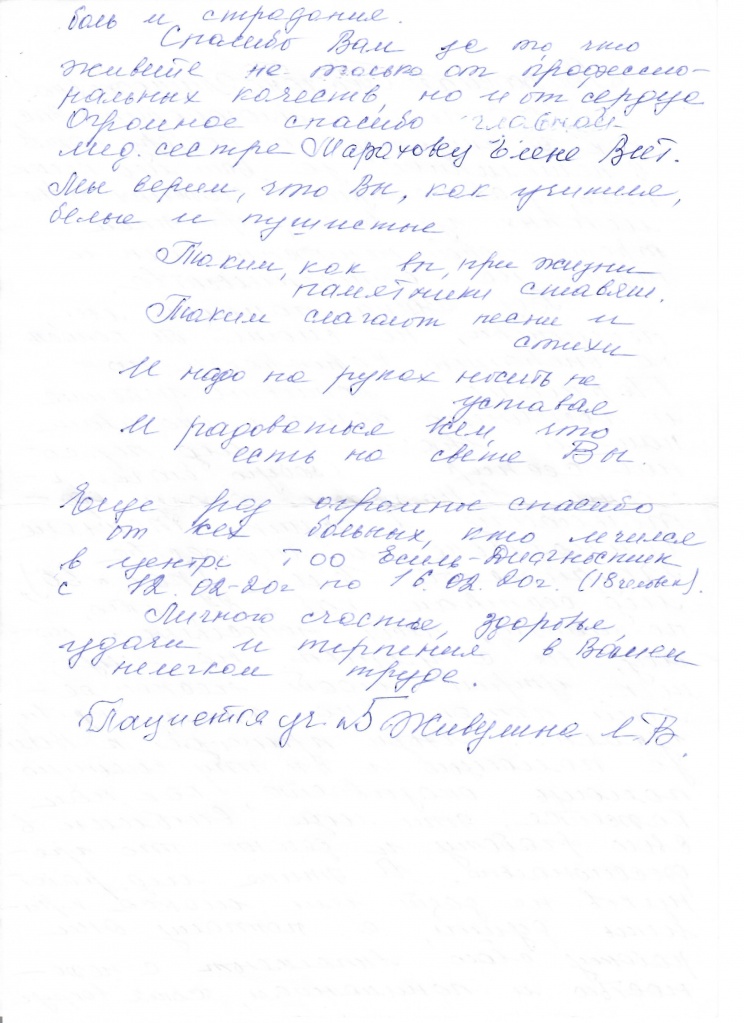 боль и страдания.
Спасибо Вам за то, что
живёте не только от профессио-
нальных качеств, но и от сердца
Огромное спасибо главной
мед. сестре Мараховец Елене Вит.
Мы верим, что Вы, как учителя,
белые и пушистые
Таким, как вы, при жизни
памятники ставят.
Таким слагают песни и
стихи
И надо на руках носить не
уставая
И радоваться всем, что
есть на свете Вы.
Еще раз огромное спасибо
от всех больных, кто лечился
в центре ТОО Есиль-Диагностик
с 12.02-20г по 16.02.20г. (18 человек).
Личного счастья, здоровья
удачи и терпения в Вашем
нелегком труде.
уч. №5 Живулина В.